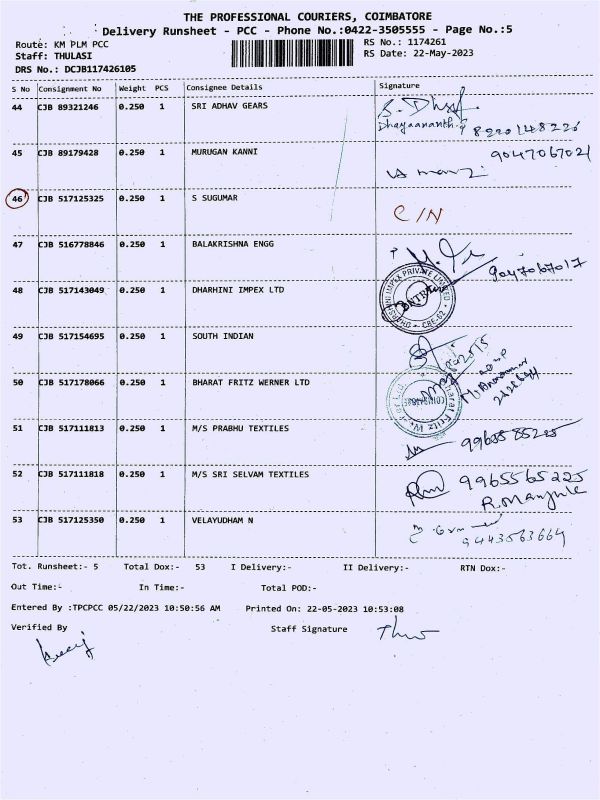 THE PROFESSIONAL COURIERS, COIMBATORE
Delivery Runsheet - PCC - Phone No.:0422-3505555 - Page No.:5
Route: KM PLM PCC
RS No.: 1174261
Staff: THULASI
RS Date: 22-May-2023
DRS No.: DCJB117426105
S No Consignment No Weight PCS Consignee Details Signature
44 CJB 89321246 0.250 1 SRI ADHAV GEARS
Dhayaananth.P 8220148226
45 CJB 89179428 0.250 1 MURUGAN KANNI 9047067021
46 CJB 517125325 0.250 1 S SUGUMAR C/N
47 CJB 516778846 0.250 1 BALAKRISHNA ENGG
9047067017
48 CJB 517143049 0.250 1 DHARHINI IMPEX LTD
49 CJB 517154695 0.250 1 SOUTH INDIAN
50 CJB 517178066 0.250 1 BHARAT FRITZ WERNER LTD
51 CJB 517111813 0.250 1 M/S PRABHU TEXTILES
52 CJB 517111818 0.250 1 M/S SRI SELVAM TEXTILES 9965565225
R.Manjule
53 CJB 517125350 0.250 1 VELAYUDHAM N
9443563664
Tot. Runsheet:- 5 Total Dox:- 53 I Delivery:- II Delivery:- RTN Dox:-
Out Time:- In Time:- Total POD:-
Entered By :TPCPCC 05/22/2023 10:50:56 AM Printed On: 22-05-2023 10:53:08
Verified By Staff Signature